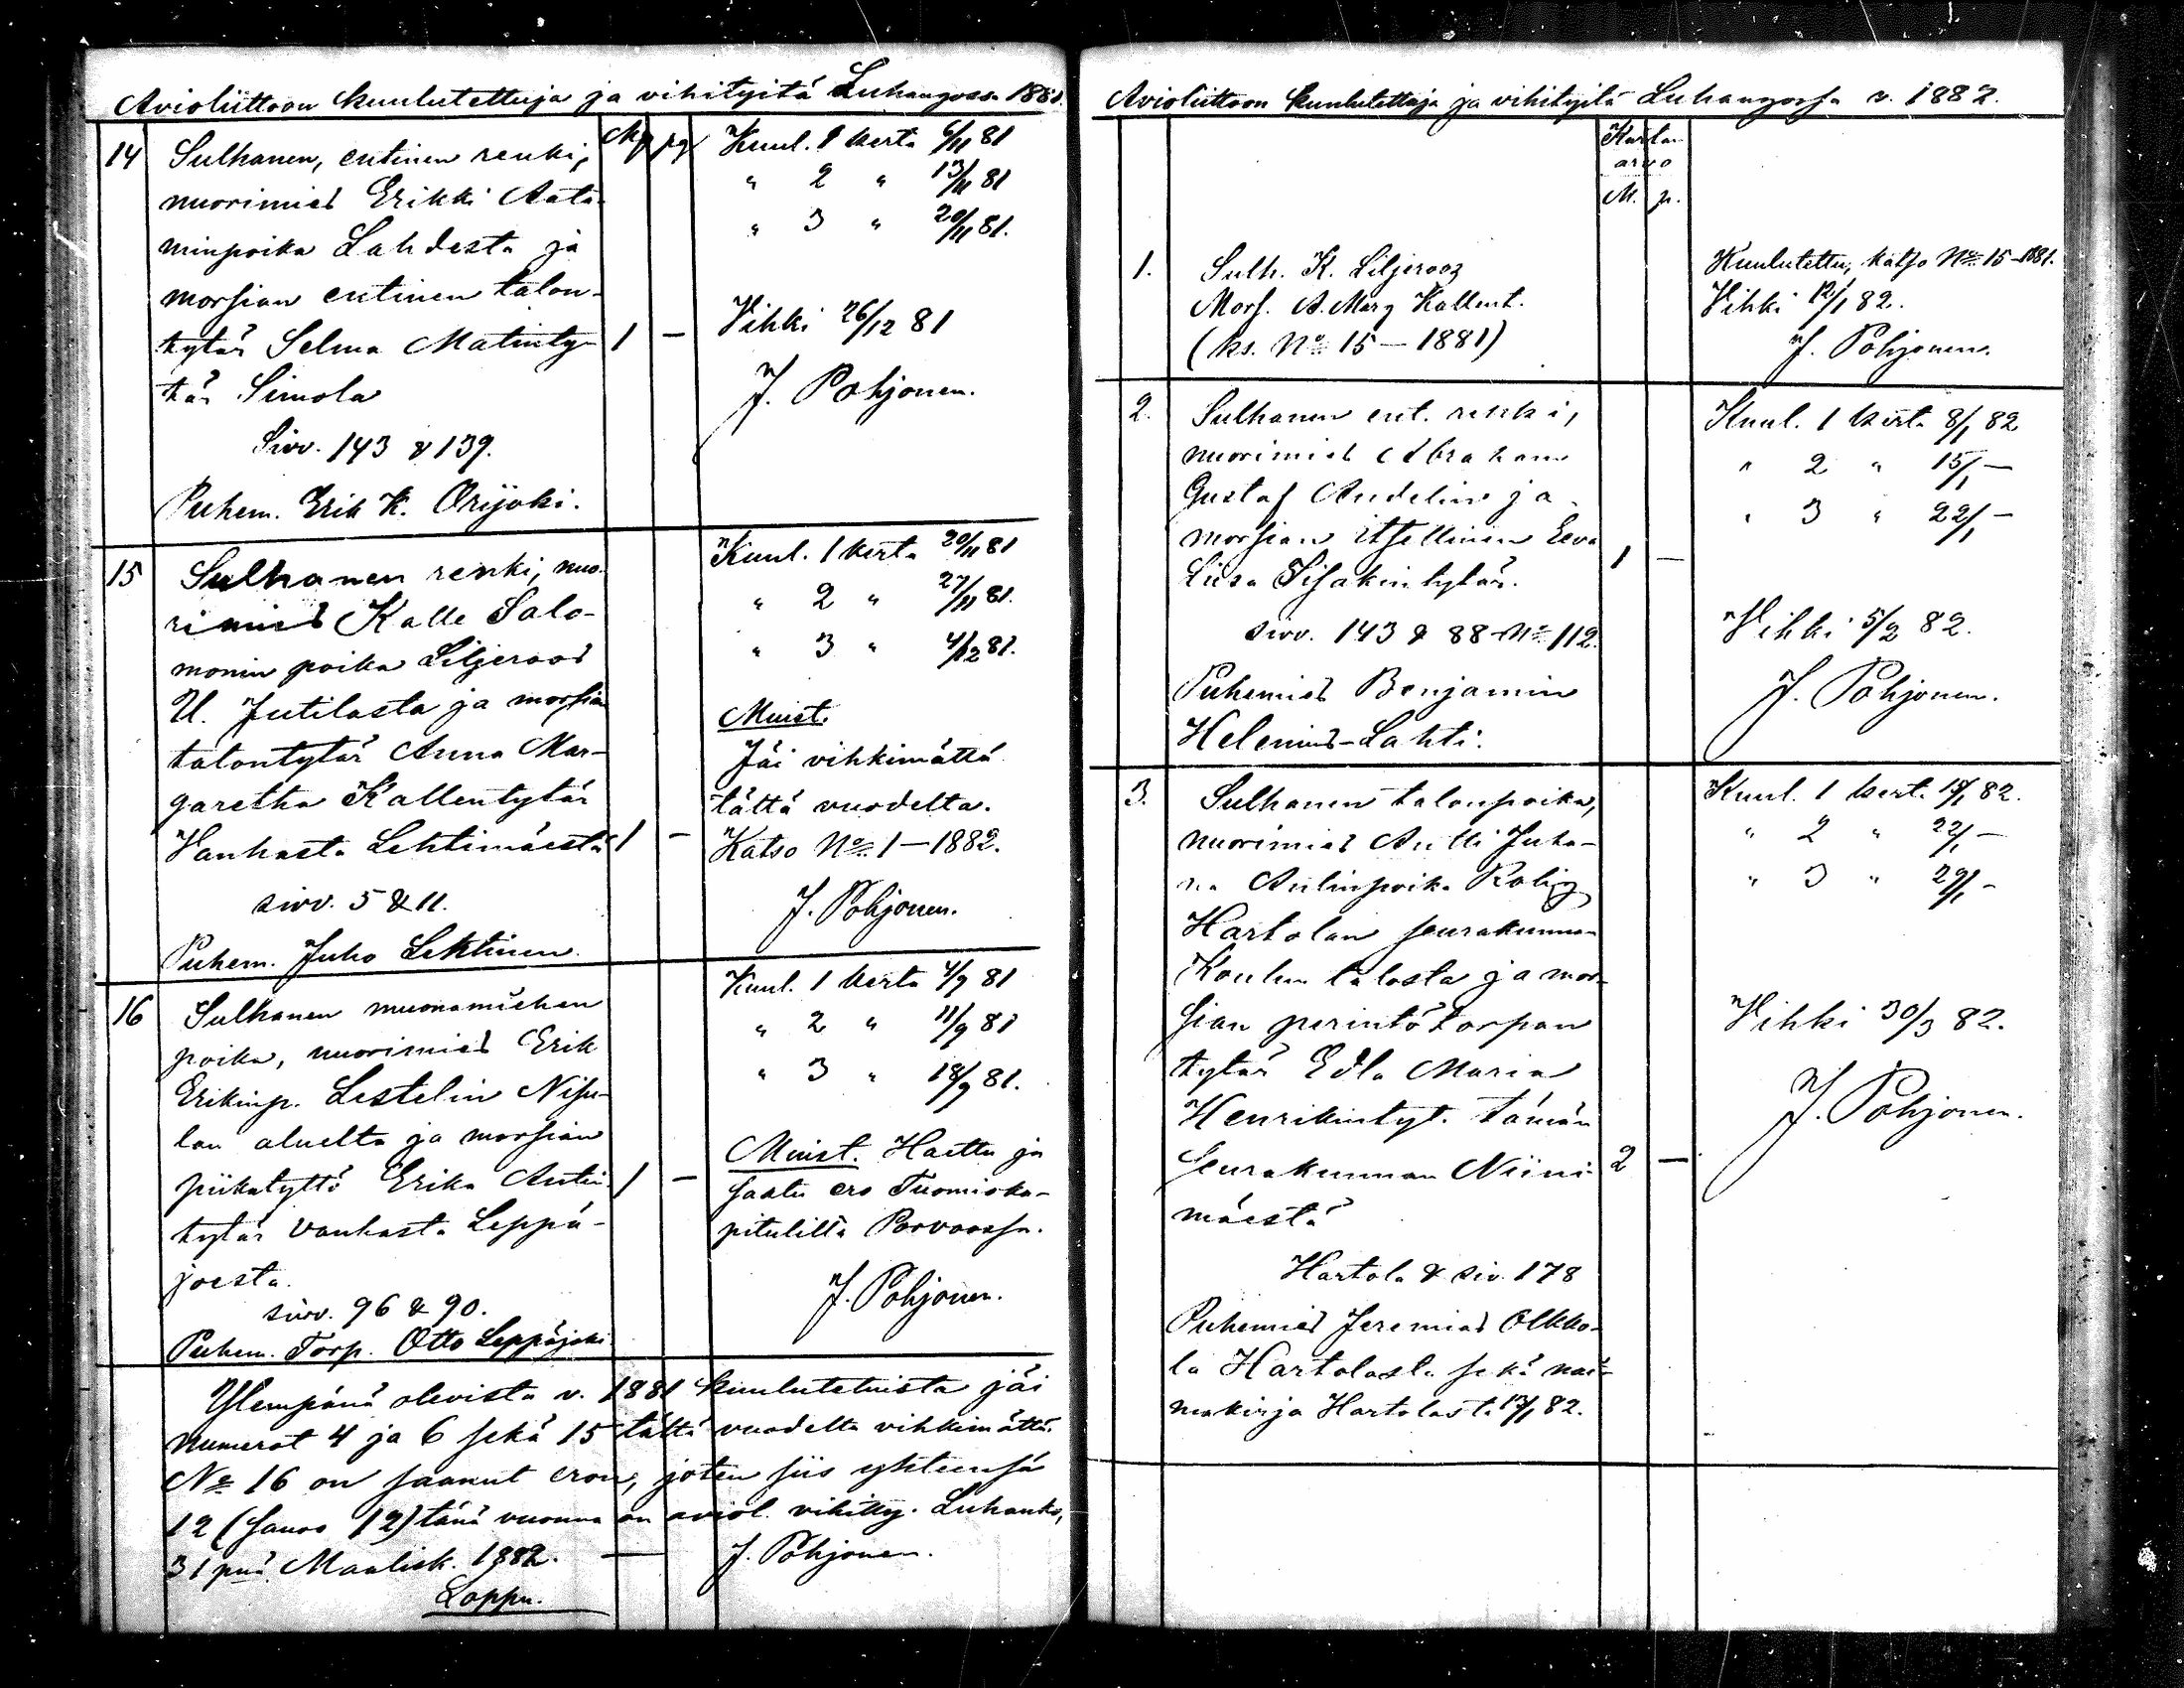 Avioliittoon kuulutettuja ja vihityitä Luhangossa 1881.
Mk pg
14 Sulhanen, entinen renki,
nuorimies Erikki Aata-
minpoika Lahdesta ja
morsian entinen talon-
tytär Selma Matinty-
tär Simola
1 —
Sivv. 143 & 139.
Puhem. Erik K. Orijoki.
Kuul. 1 kerta 6/11 81
" 2 " 13/11 81
" 3 " 20/11 81.
Vihki 26/12 81
J. Pohjonen.
15 Sulhanen renki, nuo-
rimies Kalle Salo-
monin poika Liljeroos
U. Jutilasta ja morsian
talontytär Anna Mar-
garetha Kallentytär
Vanhasta Lehtimäestä
1 —
sivv. 5 & 11.
Puhem. Juho Lehtinen.
Kuul. 1 kerta 20/11 81
" 2 " 27/11 81.
" 3 " 4/12 81.
Muist.
Jäi vihkimättä
tältä vuodelta.
Katso No 1 — 1882.
J. Pohjonen.
16 Sulhanen muonamiehen
poika, nuorimies Erik
Erikinp. Lestelin Nisu-
lan aluelta ja morsian
piikatyttö Erika Antin
tytär vanhasta Leppä-
joesta.
1 —
sivv. 96 & 90.
Puhem. Torp. Otto Leppäjoki
Kuul. 1 kerta 4/9 81
" 2 " 11/9 81
" 3 " 18/9 81.
Muist. Haettu ja
saatu ero Tuomioka-
pitulilta Porvoossa.
J. Pohjonen.
Ylempänä olevista v. 1881 kuulutetuista jäi
numerot 4 ja 6 sekä 15 tältä vuodelta vihkimättä.
No 16 on saanut eron, joten siis yhteensä
12 (sanoo 12) tänä vuonna on aviol. vihitty. Luhanko,
31 pnä Maalisk. 1882. — J. Pohjonen.
Loppu.
Avioliittoon kuulutettuja ja vihityitä Luhangossa v. 1882.
Kartan
arvo
M. p.
1. Sulh. K. Liljerooz
Mors. A. Marg Kallent.
(ks. No 15 — 1881)
Kuulutettu, katso No 15 — 1881.
Vihki 12/1 82.
J. Pohjonen.
2. Sulhanen ent. renki,
nuorimies Abraham
Gustaf Andelin ja
morsian itsellinen Eeva
Liisa Iisakintytär.
1 —
sivv. 143 & 88 No 112.
Puhemies Benjamin
Helenius-Lahti.
Kuul. 1 kerta 8/1 82
" 2 " 15/1 —
" 3 " 22/1 —
Vihki 5/2 82.
J. Pohjonen.
3. Sulhanen talonpoika,
nuorimies Antti Juha-
na Antinpoika
Hartolan seurakunnan
talosta ja mor-
sian perintötorpan
tytär Edla Maria
Henrikintyt. tämän
seurakunnan Niini-
mäestä
2 —
Hartola & siv. 178
Puhemies Jeremias Olkko-
la Hartolasta sekä nai-
makirja Hartolasta 13/1 82.
Kuul. 1 kerta 15/1 82.
" 2 " 22/1 —
" 3 " 29/1 —
Vihki 30/3 82.
J. Pohjonen.